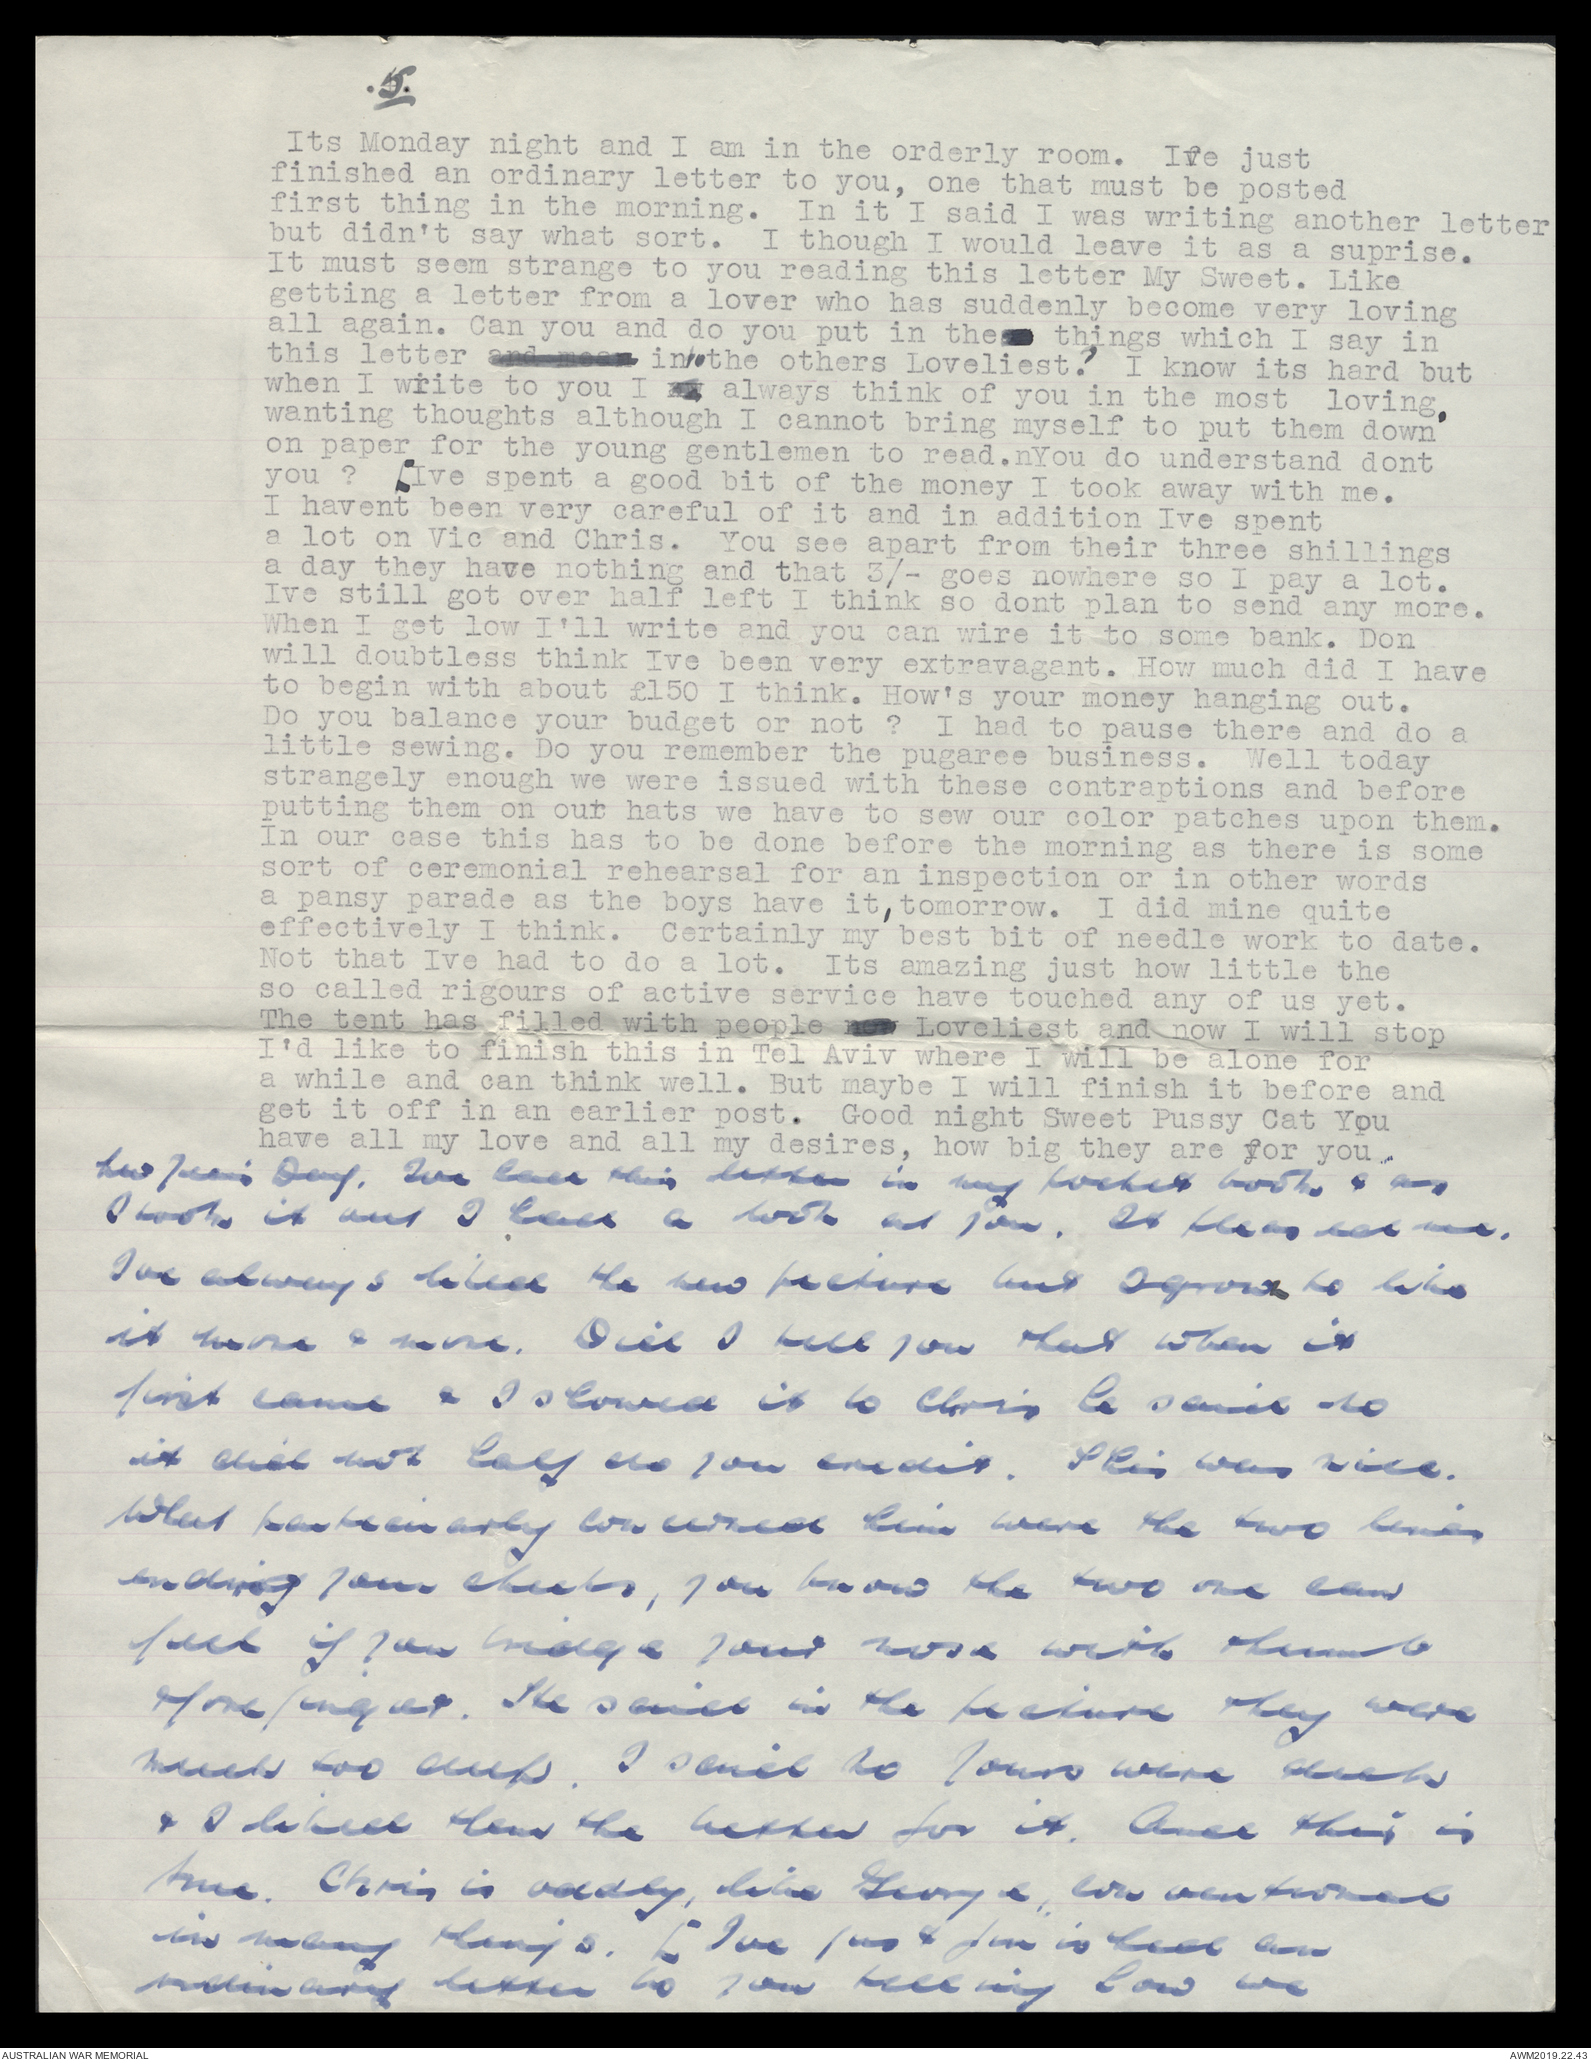 .5.
Its Monday night and I am in the orderly room. Ive just
finished an ordinary letter to you, one that must be posted
first thing in the morning. In it I said I was writing another letter
but didn't say what sort. I though I would leave it as a suprise.
It must seem strange to you reading this letter My Sweet. Like
getting a letter from a lover who has suddenly become very loving
all again. Can you and do you put in the things which I say in
this letter and mean in the others Loveliest? I know its hard but
when I write to you I always think of you in the most loving,
wanting thoughts although I cannot bring myself to put them down
on paper for the young gentlemen to read.nYou do understand dont
you ? [Ive spent a good bit of the money I took away with me.
I havent been very careful of it and in addition Ive spent
a lot on Vic and Chris. You see apart from their three shillings
a day they have nothing and that 3/- goes nowhere so I pay a lot.
Ive still got over half left I think so dont plan to send any more.
When I get low I'll write and you can wire it to some bank. Don
will doubtless think Ive been very extravagant. How much did I have
to begin with about £150 I think. How's your money hanging out.
Do you balance your budget or not ? I had to pause there and do a
little sewing. Do you remember the pugaree business. Well today
strangely enough we were issued with these contraptions and before
putting them on our hats we have to sew our color patches upon them.
In our case this has to be done before the morning as there is some
sort of ceremonial rehearsal for an inspection or in other words
a pansy parade as the boys have it, tomorrow. I did mine quite
effectively I think. Certainly my best bit of needle work to date.
Not that Ive had to do a lot. Its amazing just how little the
so called rigours of active service have touched any of us yet.
The tent has filled with people now Loveliest and now I will stop
I'd like to finish this in Tel Aviv where I will be alone for
a while and can think well. But maybe I will finish it before and
get it off in an earlier post. Good night Sweet Pussy Cat You
have all my love and all my desires, how big they are for you.
Day. Ive had this letter in my pocket book & as
I took it out I had a look at you. It pleased me.
Ive always liked the new picture but I grow to like
it more & more. Did I tell you that when it
first came & I showed it to Chris he said no
it did not half do you credit. This was nice.
What particularly concerned him were the two lines
ending your cheeks, you know the two one can
feel if you bridge your nose with thumb
& forefinger. He said in the picture they were
much too deep. I said no yours were deep
& I liked them the better for it. And this is
true. Chris is oddly, like George, conventional
in many things. [ Ive just finished an
ordinary letter to you telling how we
AUSTRALIAN WAR MEMORIAL
AWM2019.22.43